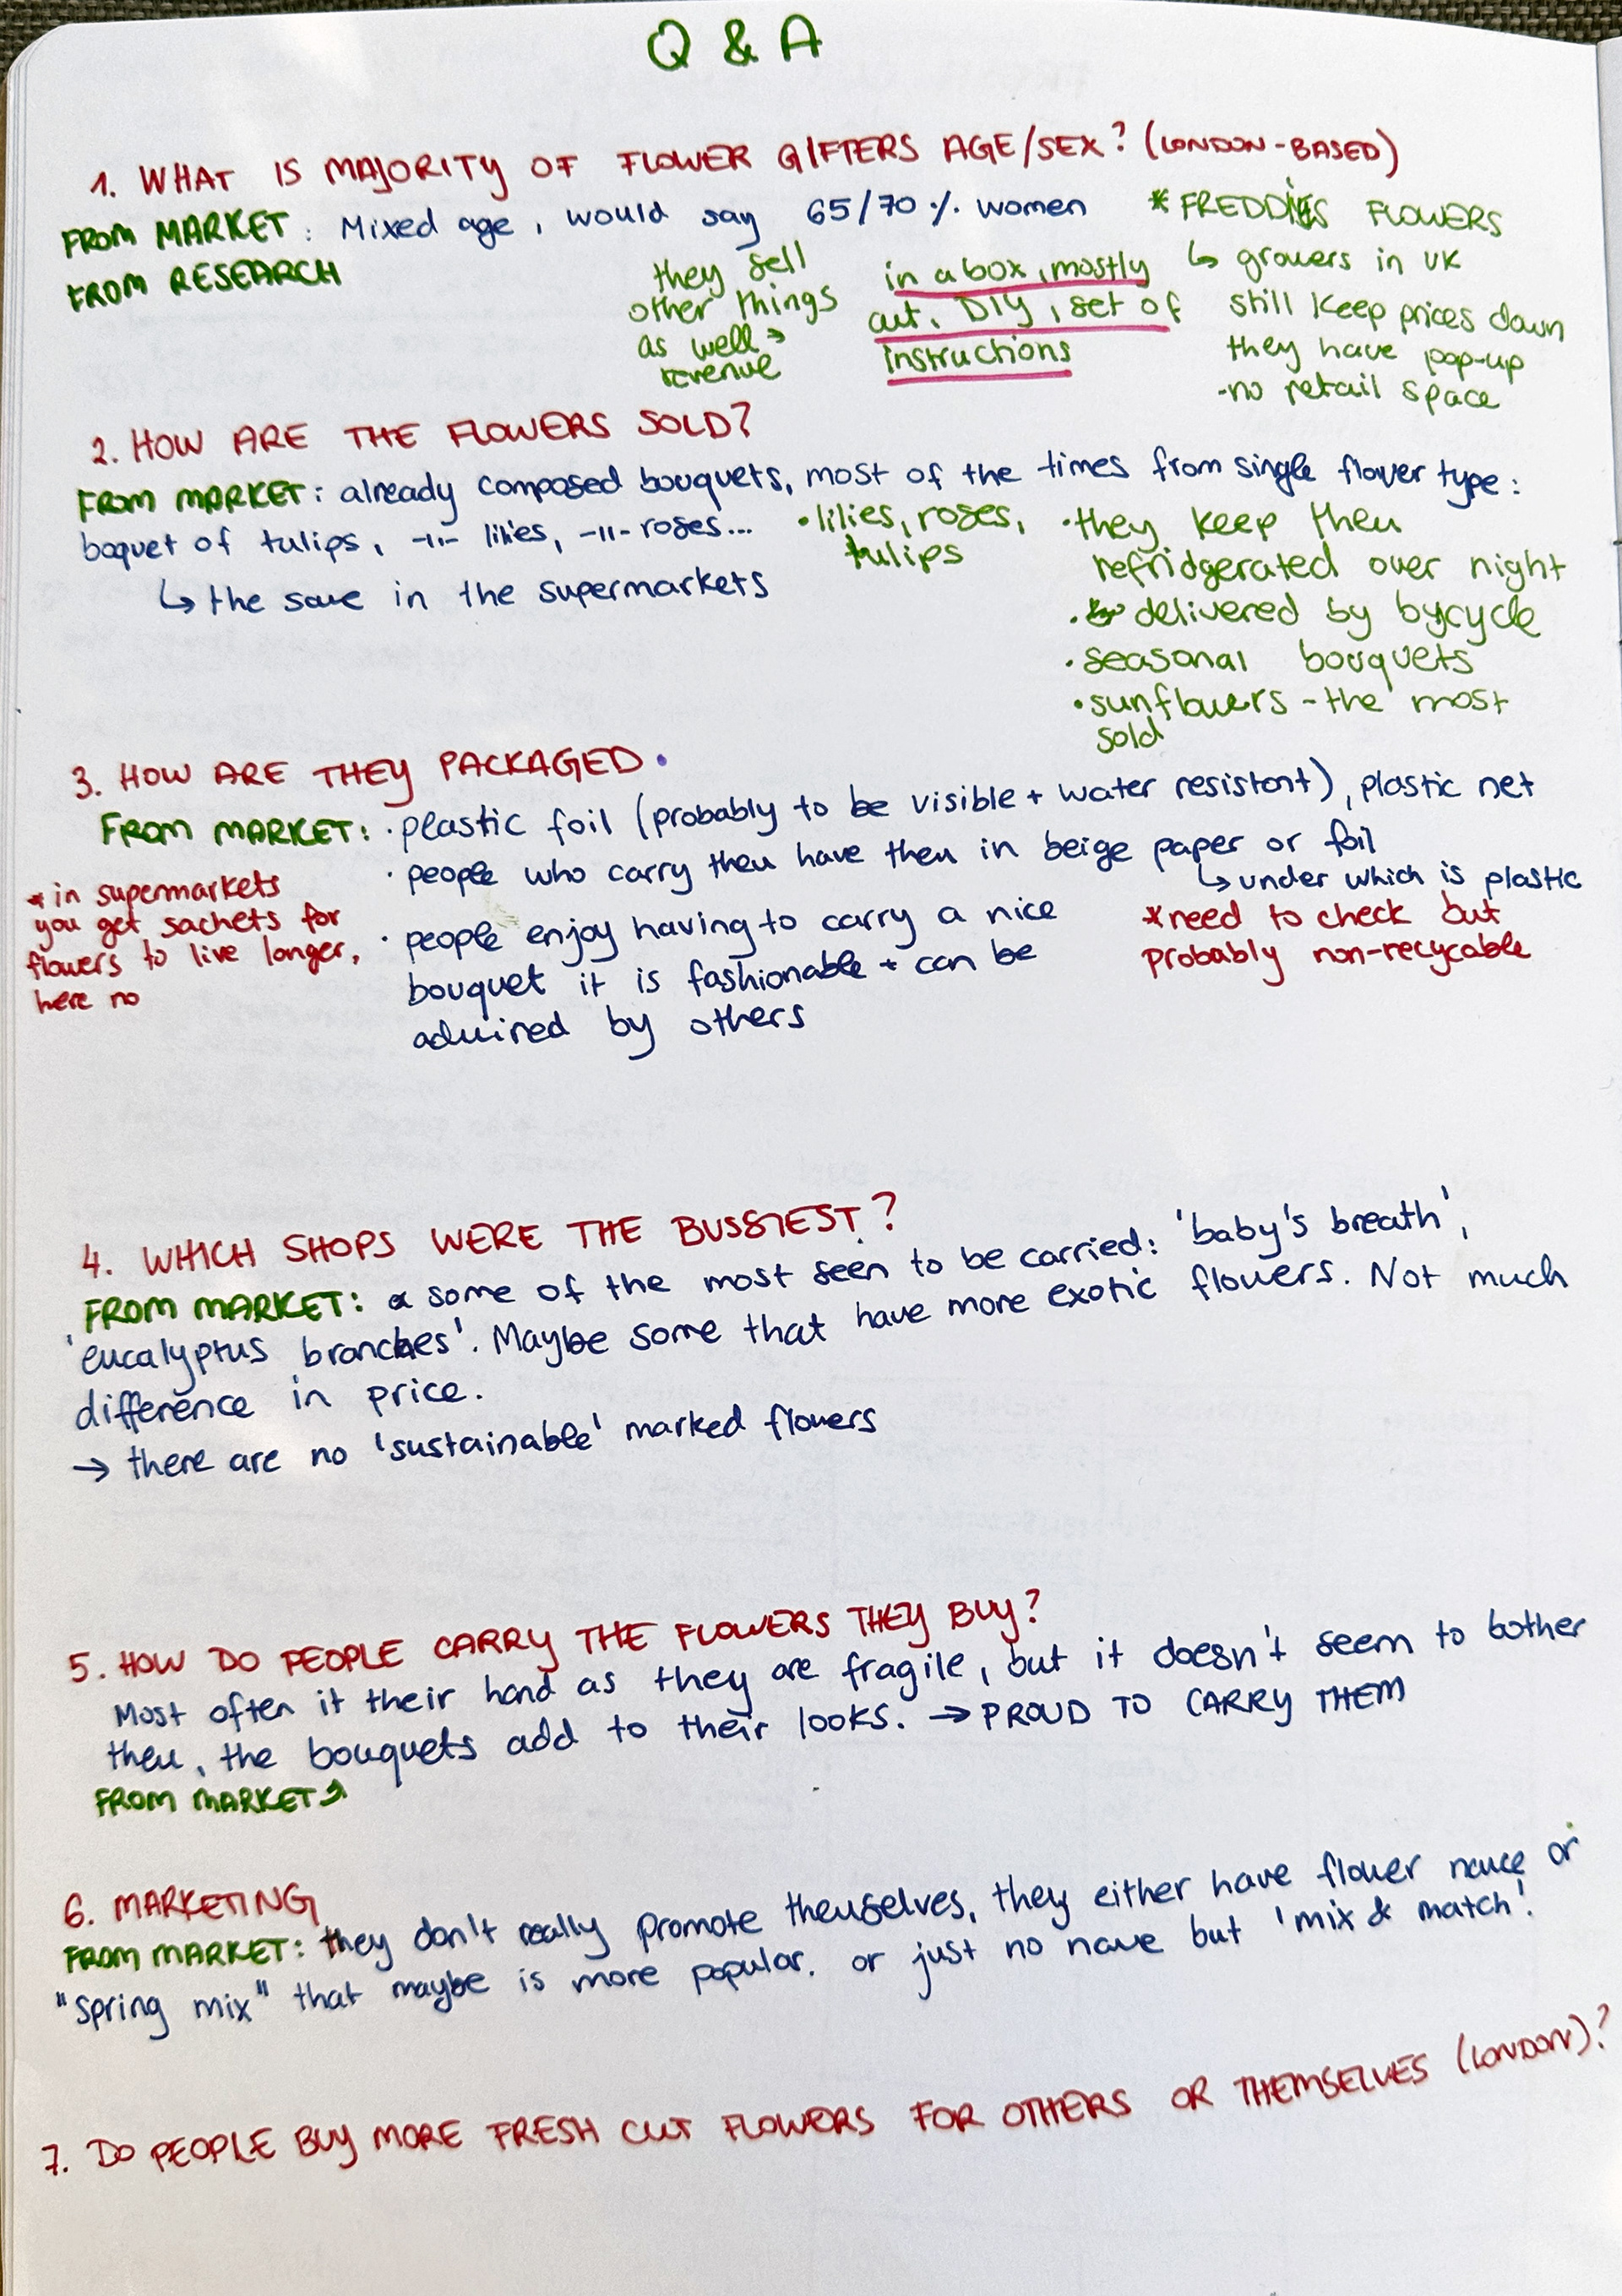 Q & A
1. WHAT IS MAJORITY OF FLOWER GIFTERS AGE/SEX? (LONDON-BASED)
FROM MARKET: Mixed age, would say 65/70 % women
FROM RESEARCH
they sell
other things
as well →
revenue
in a box, mostly
cut, DIY, set of
instructions
* FREDDIES FLOWERS
↳ growers in UK
still keep prices down
they have pop-up
-no retail space
2. HOW ARE THE FLOWERS SOLD?
FROM MARKET: already composed bouquets, most of the times from single flower type:
boquet of tulips, -11- lilies, -11- roses...
↳ the same in the supermarkets
• lilies, roses,
tulips
• they keep them
refridgerated over night
• delivered by bycycle
• seasonal bouquets
• sunflowers - the most
sold
3. HOW ARE THEY PACKAGED.
FROM MARKET: · plastic foil (probably to be visible + water resistant), plastic net
· people who carry them have them in beige paper or foil
↳ under which is plastic
* in supermarkets
you get sachets for
flowers to live longer,
here no
· people enjoy having to carry a nice
bouquet it is fashionable + can be
admired by others
* need to check but
probably non-recycable
4. WHICH SHOPS WERE THE BUSSIEST?
FROM MARKET: some of the most seen to be carried: 'baby's breath',
'eucalyptus branches'. Maybe some that have more exotic flowers. Not much
difference in price.
→ there are no 'sustainable' marked flowers
5. HOW DO PEOPLE CARRY THE FLOWERS THEY BUY?
Most often it their hand as they are fragile, but it doesn't seem to bother
them, the bouquets add to their looks. → PROUD TO CARRY THEM
FROM MARKET
6. MARKETING
FROM MARKET: they don't really promote themselves, they either have flower name or
"spring mix" that maybe is more popular. or just no name but 'mix & match'.
7. DO PEOPLE BUY MORE FRESH CUT FLOWERS FOR OTHERS OR THEMSELVES (LONDON)?